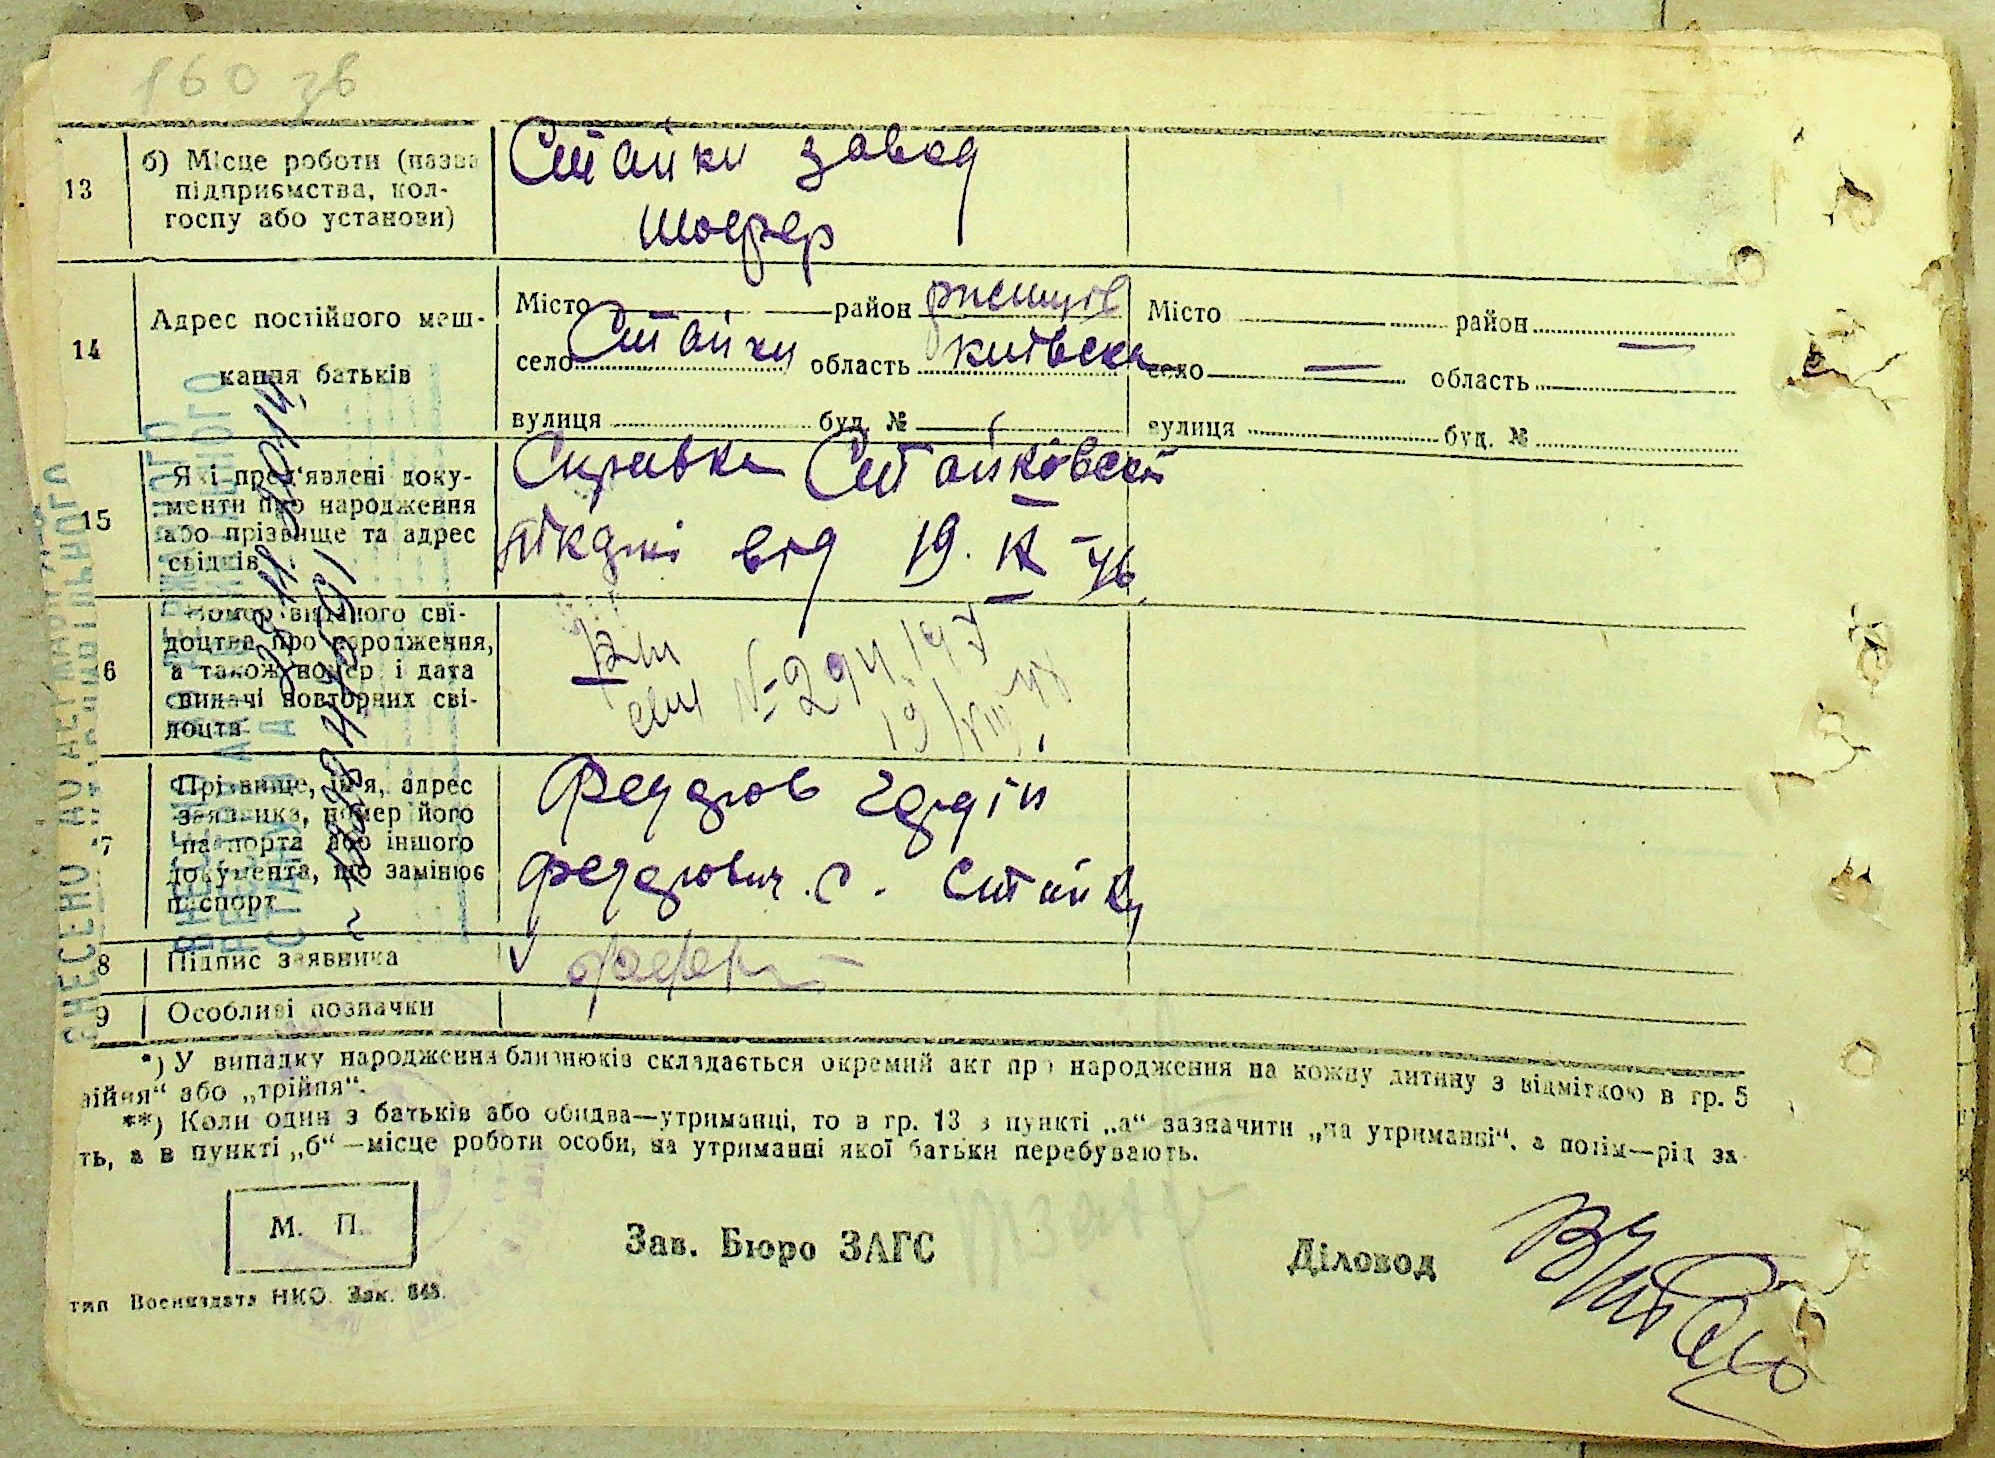 160 зв
13
б) Місце роботи (назва
підприємства, кол-
госпу або установи)
Стайки завод
шофер
14
Адрес постійного меш-
кання батьків
Місто район ржищів
село Стайки область київська
вулиця буд. №
Місто район —
село — область
вулиця буд. №
15
Які пред'явлені доку-
менти про народження
або прізвище та адрес
свідків
Справка Стайковської
від 19. IX-46
6
Номер виданого сві-
доцтва про народження,
а також номер і дата
видачі повторних сві-
доцтв
№ 294197
19/VIII 47
7
Прізвище, ім'я, адрес
заявника, номер його
паспорта або іншого
документа, що замінює
паспорт
Федоров
Федорович. с. Стайки
8
Підпис заявника
9
Особливі позначки
*) У випадку народження близнюків складається окремий акт про народження на кожну дитину з відміткою в гр. 5
війня“ або „трійня“.
**) Коли один з батьків або обидва—утриманці, то в гр. 13 в пункті „а“ зазначити „на утриманні“, а потім—рід за
ть, а в пункті „б“—місце роботи особи, на утриманні якої батьки перебувають.
М. П.
Зав. Бюро ЗАГС
Діловод
тип Воениздата НКО. Зак. 848.
ВНЕСЕНО ДО ДЕРЖАВНОГО